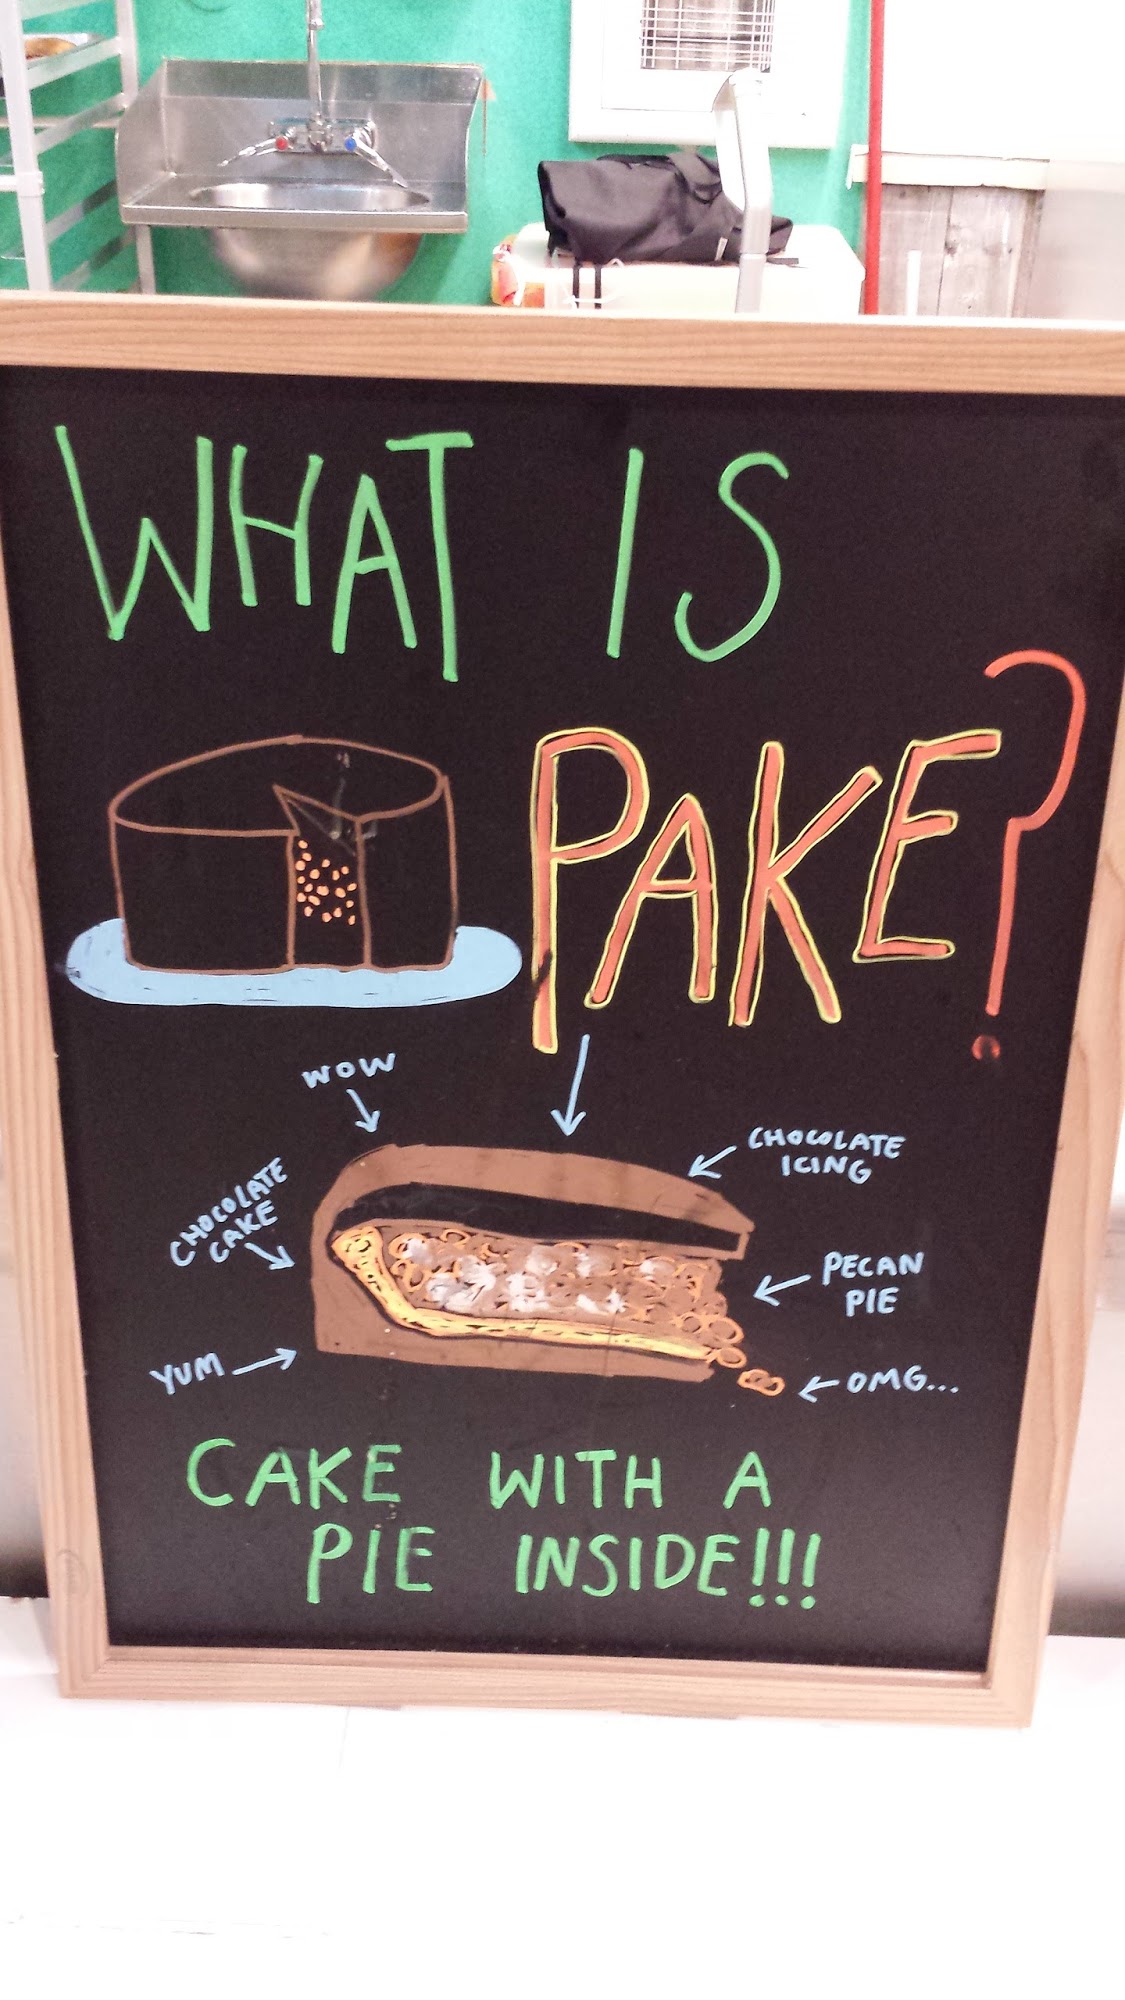 WHAT IS
PAKE?
WOW
CHOCOLATE
ICING
CHOCOLATE
CAKE
PECAN
PIE
YUM
OMG...
CAKE WITH A
PIE INSIDE!!!